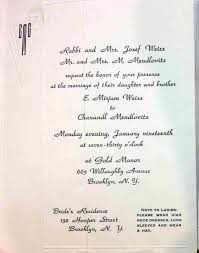 Rabbi and Mrs. Josef Weiss
Mr. and Mrs. M. Mendlovitz
request the honor of your presence
at the marriage of their daughter and brother
E. Mirjam Weiss
to
Chanandl Mendlovitz
Monday evening, January nineteenth
at seven-thirty o'clock
at Gold Manor
669 Willoughby Avenue
Brooklyn, N. Y.
Bride's Residence
132 Hooper Street
Brooklyn, N. Y.
NOTE TO LADIES:
PLEASE WEAR HIGH
NECK DRESSES, LONG
SLEEVES AND WEAR
A HAT.